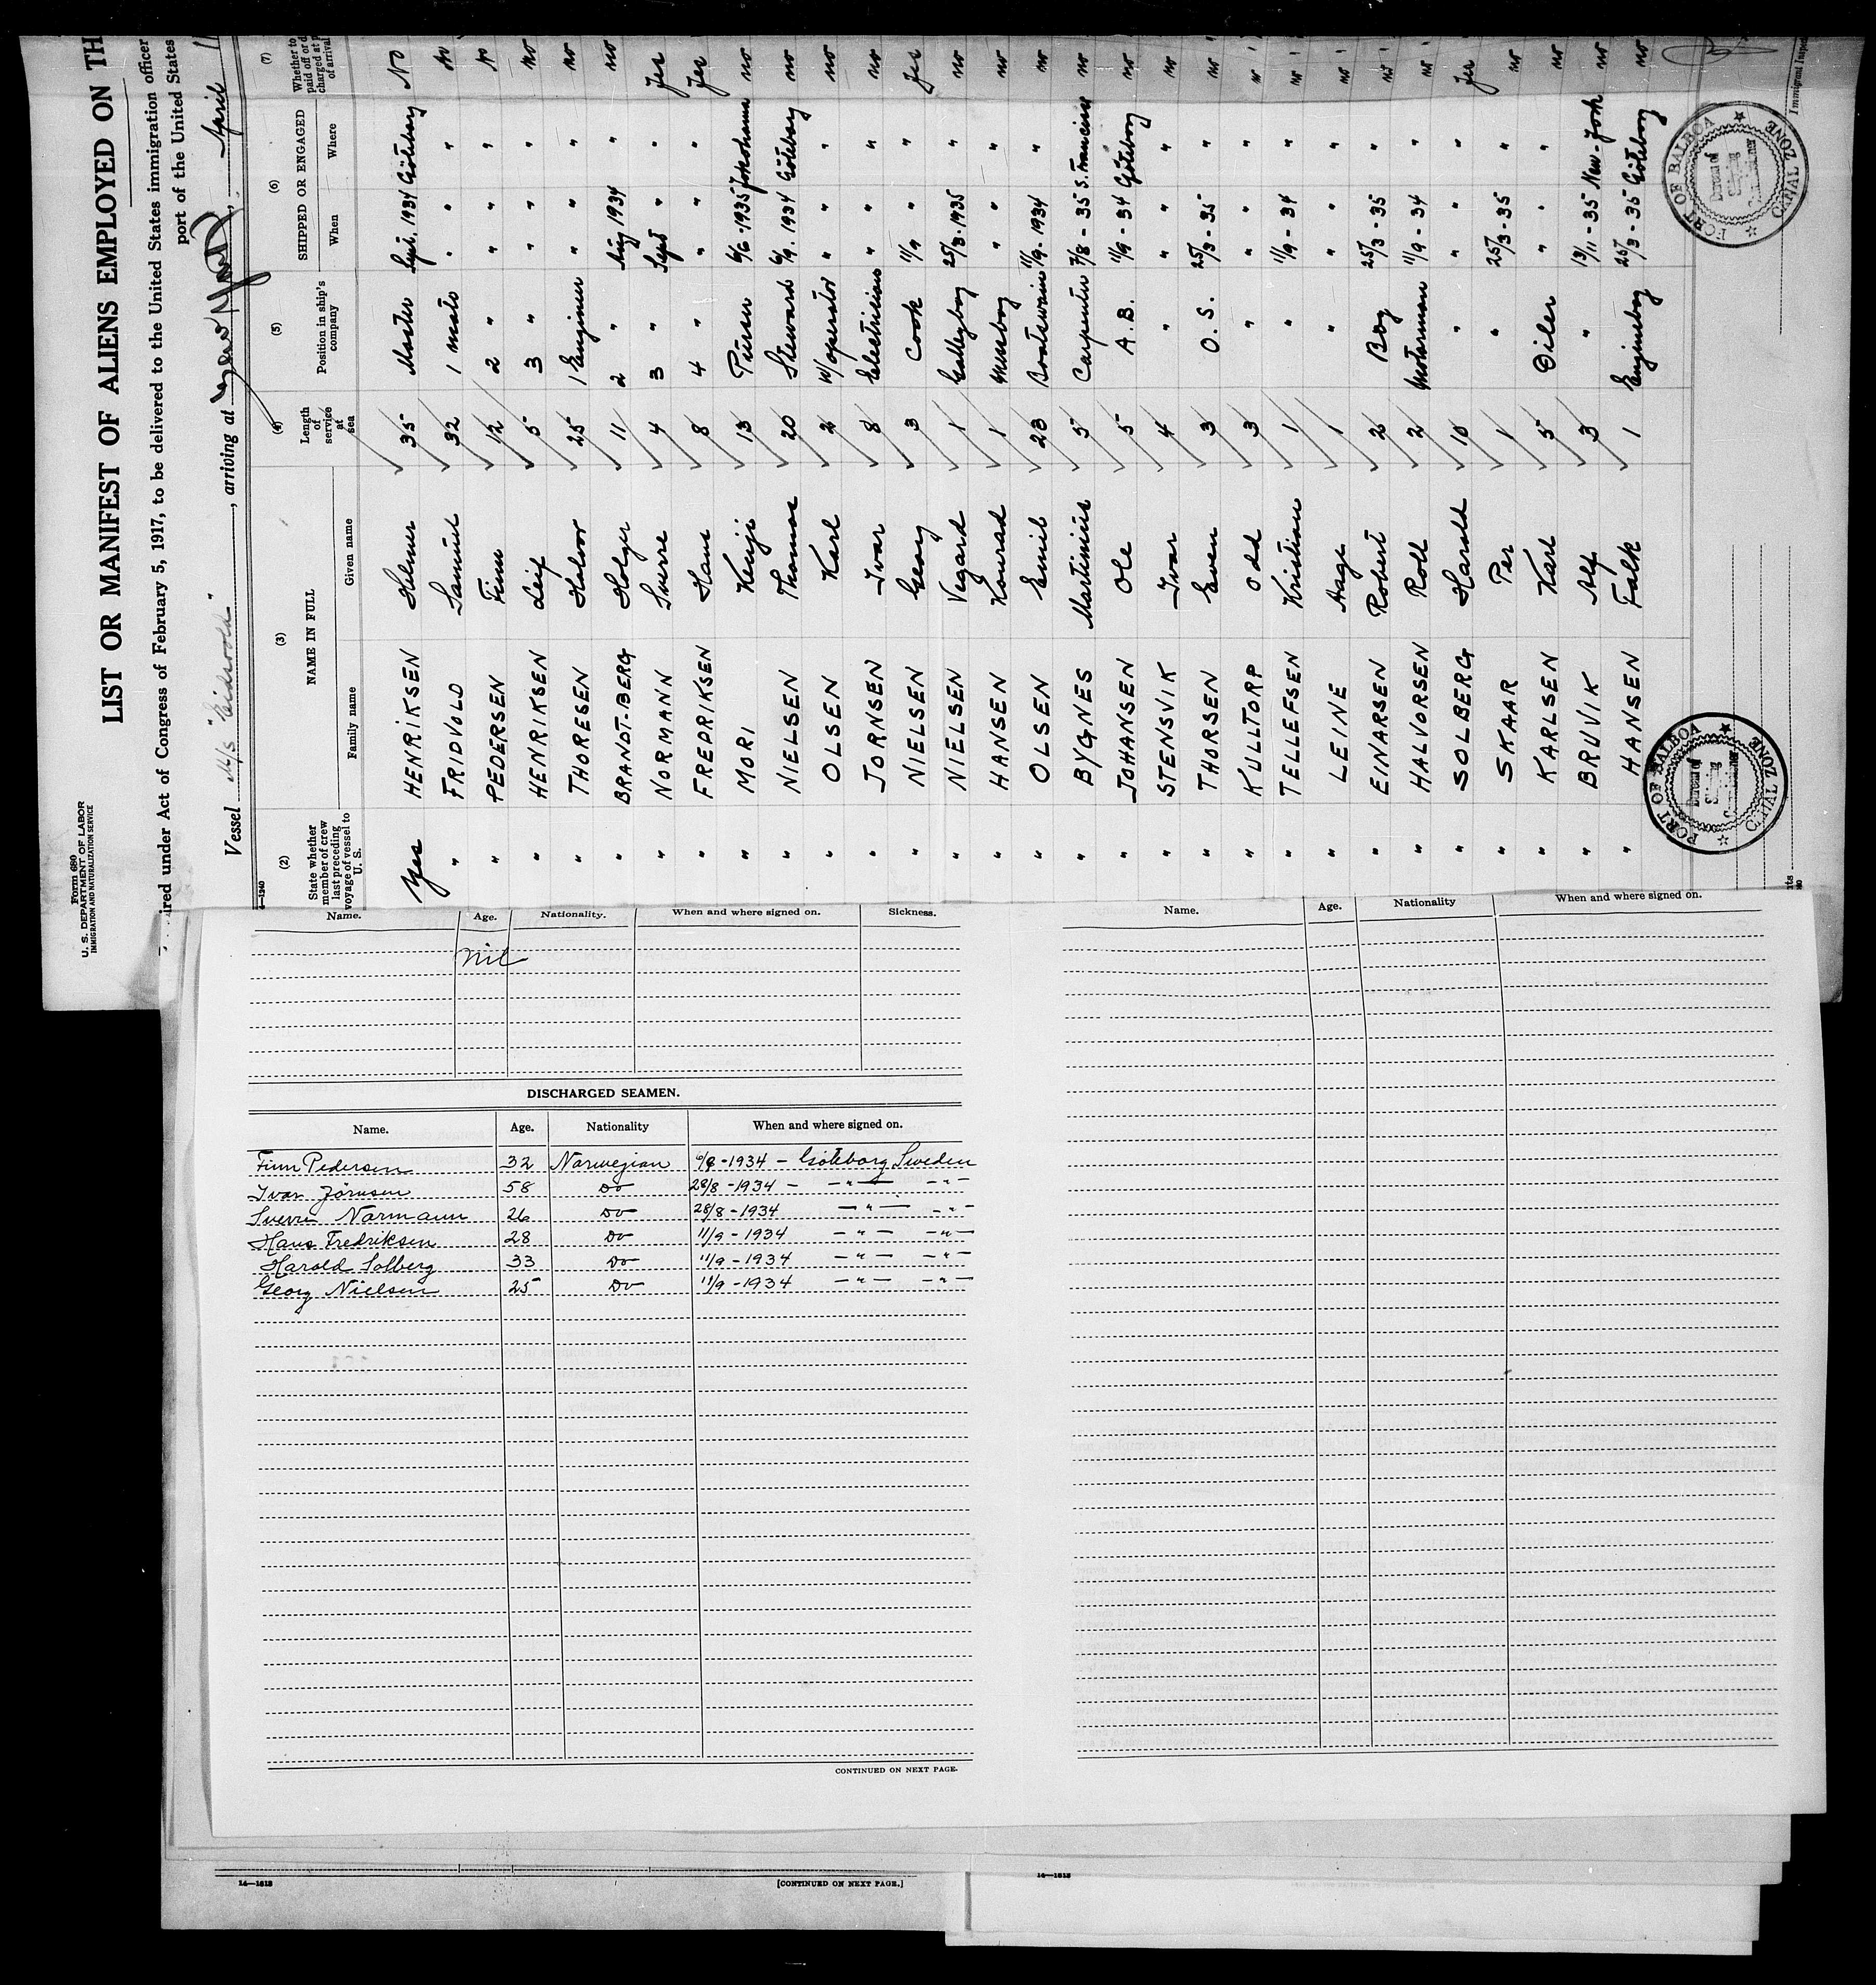 Form 680
U. S. DEPARTMENT OF LABOR
IMMIGRATION AND NATURALIZATION SERVICE
LIST OR MANIFEST OF ALIENS EMPLOYED ON TH
ired under Act of Congress of February 5, 1917, to be delivered to the United States immigration officer
port of the United States
Vessel M/S "Eidsvold", arriving at New York, April 11
(2) (3) (4) (5) (6) (7)
State whether member of crew last preceding voyage of vessel to U. S.
NAME IN FULL
Family name Given name
Length of service at sea
Position in ship's company
SHIPPED OR ENGAGED
When Where
Whether to paid off or d charged at p of arrival
Yes HENRIKSEN Helmer 35 Master Sept. 1934 Göteborg No
" FRIDVOLD Samuel 32 1 mate " " " No
" PEDERSEN Finn 12 2 " " " " No
" HENRIKSEN Leif 5 3 " " " " no
" THORESEN Halvor 25 1 Enginer " " " no
" BRANDT-BERG Holger 11 2 " Aug 1934 " no
" NORMANN Sverre 4 3 " Sept " " Yes
" FREDRIKSEN Hans 8 4 " " " " Yes
" MORI Kenji 13 Purser 6/6-1935 Yokohama no
" NIELSEN Thomas 20 Steward 6/9. 1934 Göteborg no
" OLSEN Karl 2 W/operator " " " no
" JORNSEN Ivar 8 Electrician " " " no
" NIELSEN Georg 3 Cook 11/9 " " Yes
" NIELSEN Vegard 1 Galleyboy 25/3-1935 " no
" HANSEN Konrad 1 Messboy " " " no
" OLSEN Emil 23 Boatswain 11/9-1934 " no
" BYGNES Martinius 5 Carpenter 7/8-35 S. Francisco no
" JOHANSEN Ole 5 A. B. 11/9-34 Göteborg no
" STENSVIK Ivar 4 " " " no
" THORSEN Even 3 O. S. 25/3-35 " no
" KULLTORP Odd 3 " " " no
" TELLEFSEN Kristian 1 " 11/9-34 " no
" LEINE Aage 1 " " " no
" EINARSEN Robert 2 Boy 25/3-35 " no
" HALVORSEN Rolf 2 Motorman 11/9-34 " no
" SOLBERG Harold 10 " " " Yes
" SKAAR Per 1 " 25/3-35 " no
" KARLSEN Karl 5 Oiler " " no
" BRUVIK Alf 3 " 13/11-35 New-York no
" HANSEN Falk 1 Engineboy 25/3-35 Göteborg no
PORT OF BALBOA
Bureau of Shipping Commissioner
CANAL ZONE
PORT OF BALBOA
Bureau of Shipping Commissioner
CANAL ZONE
Immigrant Inspec
Name. Age. Nationality. When and where signed on. Sickness.
Nil
DISCHARGED SEAMEN.
Name. Age. Nationality When and where signed on.
Finn Pedersen 32 Norwegian 6/8-1934 - Göteborg Sweden
Ivar Jörnsen 58 Do 28/8-1934 - -"- -"-
Sverre Normann 26 Do 28/8-1934 -"- -"-
Hans Fredriksen 28 Do 11/9-1934 -"- -"-
Harold Solberg 33 Do 11/9-1934 -"- -"-
Georg Nielsen 25 Do 11/9-1934 -"- -"-
CONTINUED ON NEXT PAGE.
Name. Age. Nationality When and where signed on.
14—1218
[CONTINUED ON NEXT PAGE.]
14—1218